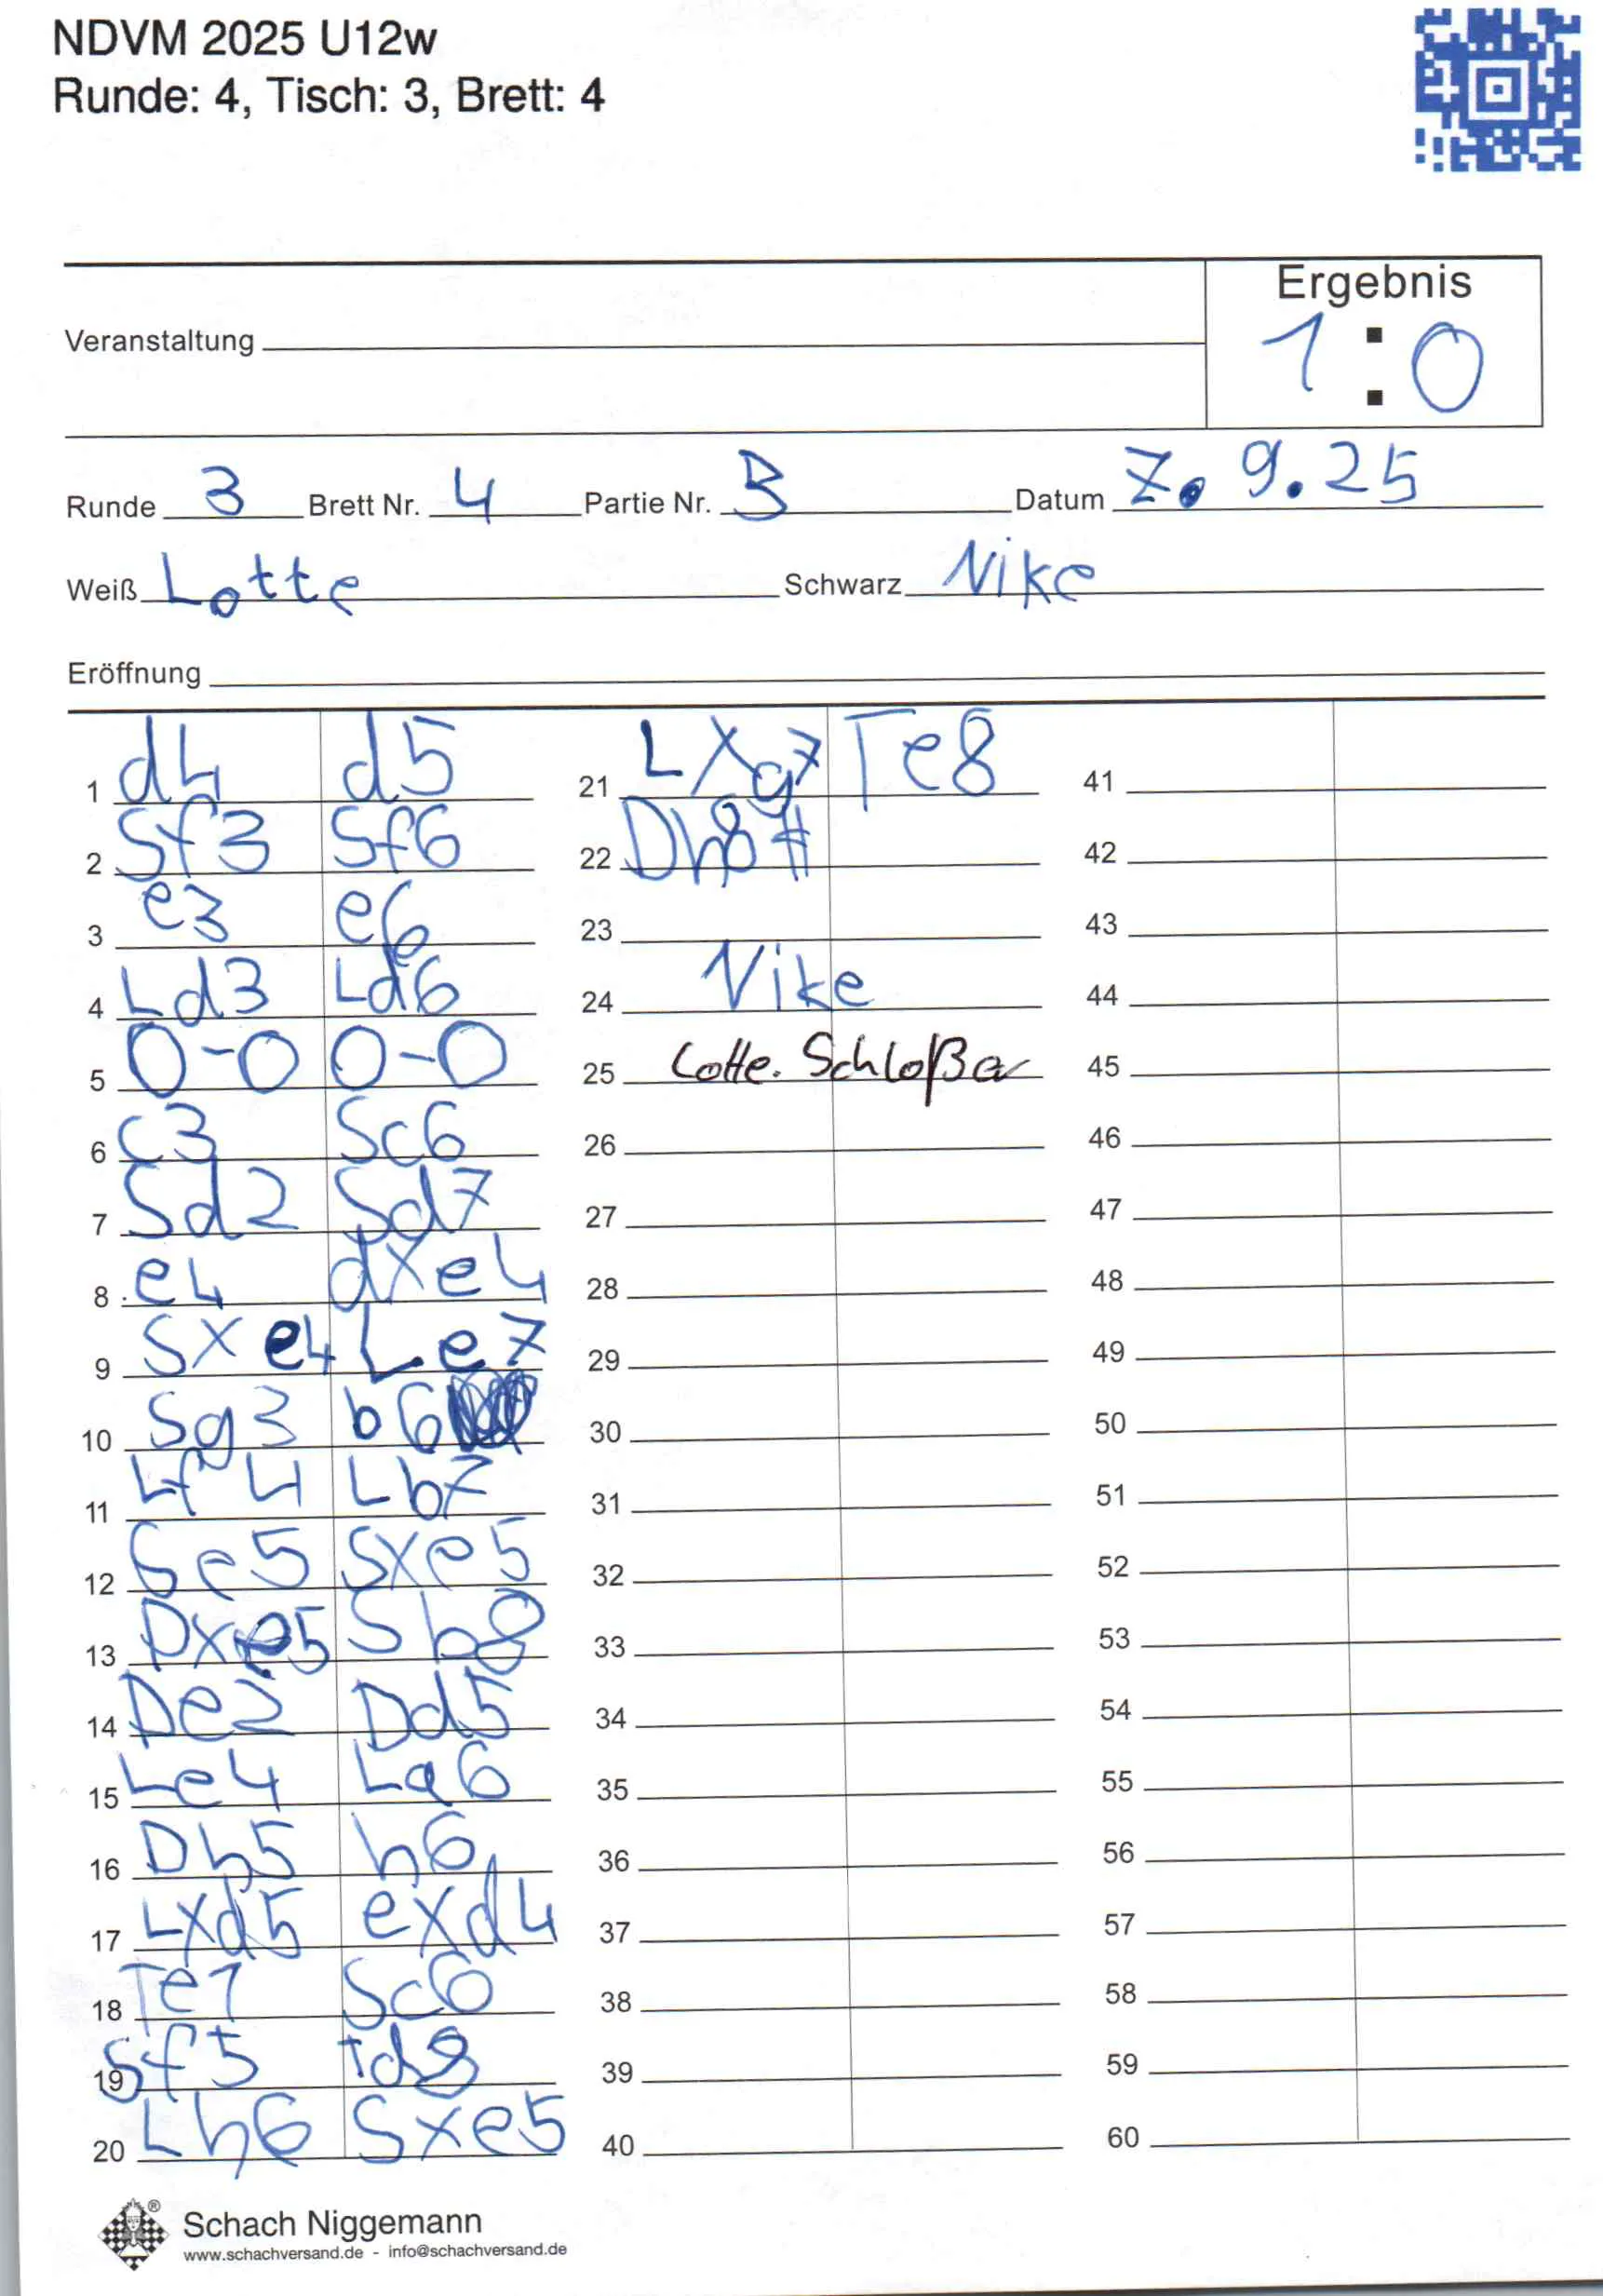 NDVM 2025 U12w
Runde: 4, Tisch: 3, Brett: 4
Ergebnis
1 : 0
Veranstaltung
Runde 3 Brett Nr. 4 Partie Nr. 3 Datum 7. 9. 25
Weiß Lotte Schwarz Nike
Eröffnung
1 d4 d5
2 Sf3 Sf6
3 e3 e6
4 Ld3 Ld6
5 0-0 0-0
6 c3 Sc6
7 Sd2 Sd7
8 e4 dxe4
9 Sxe4 Le7
10 Sg3 b6
11 Lf4 Lb7
12 Se5 Sxe5
13 Dxe5 Sb8
14 De2 Dd5
15 Le4 La6
16 Dh5 h6
17 Lxd5 exd4
18 Te1 Sc6
19 Sf5 td8
20 Lh6 Sxe5
21 LXg7 Te8
22 Dh8#
23
24 Nike
25 Lotte. Schloßer
26
27
28
29
30
31
32
33
34
35
36
37
38
39
40
41
42
43
44
45
46
47
48
49
50
51
52
53
54
55
56
57
58
59
60
® Schach Niggemann
www.schachversand.de - info@schachversand.de